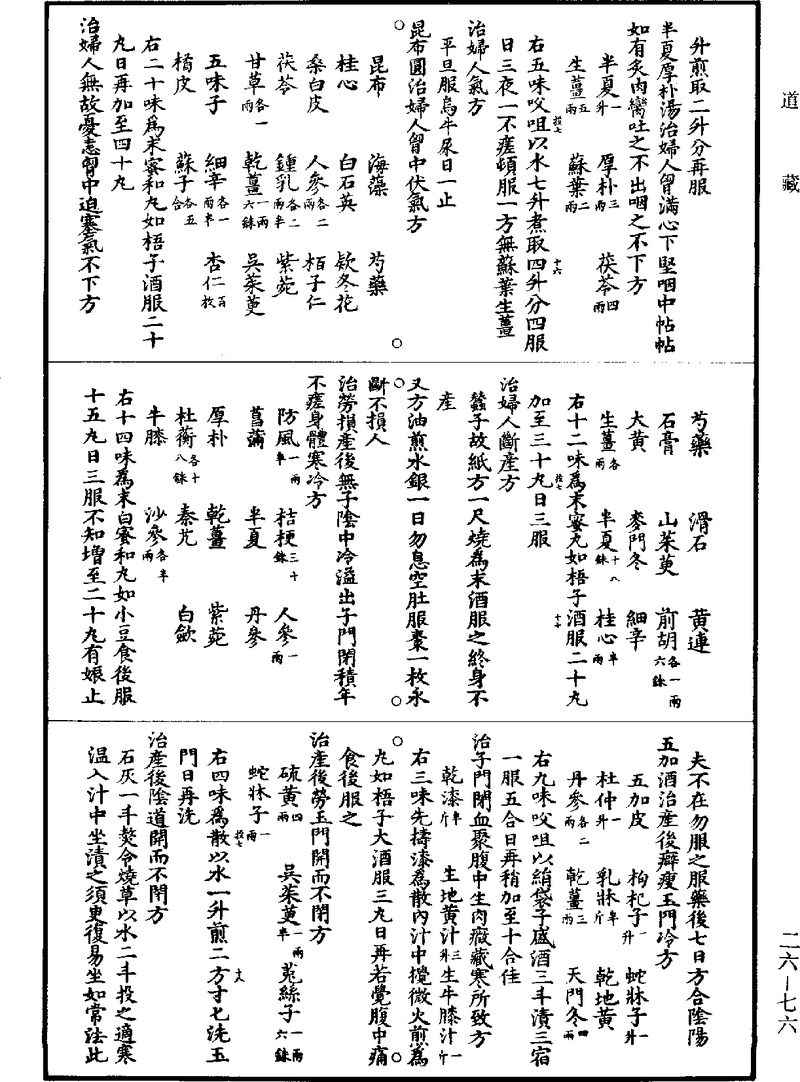 道藏
升煎取二升分再服
半夏厚朴湯治婦人胷滿心下堅咽中帖帖
如有炙肉臠吐之不出咽之不下方
半夏一升 厚朴三兩 茯苓四兩
生薑五兩 蘇葉二兩
右五味㕮咀以水七升煮取四升分四服
日三夜一不瘥頓服一方無蘇葉生薑
治婦人氣方
平旦服烏牛尿日一止
昆布圓治婦人胷中伏氣方
昆布 海藻 芍藥
桂心 白石英 欵冬花
桑白皮 人參各二兩 栢子仁
茯苓 鍾乳各二兩半 紫菀
甘草各一兩 乾薑一兩六銖 吳茱萸
五味子 細辛各一兩半 杏仁百枚
橘皮 蘇子各五合
右二十味為末蜜和丸如梧子酒服二十
丸日再加至四十丸
治婦人無故憂恚胷中迫塞氣不下方
芍藥 滑石 黃連
石膏 山茱萸 前胡各一兩六銖
大黃 麥門冬 細辛
生薑各一兩 半夏十八銖 桂心半兩
右十二味為末蜜丸如梧子酒服二十丸
加至三十丸日三服
治婦人斷産方
蠶子故紙方一尺燒為末酒服之終身不
產
又方油煎水銀一日勿息空肚服棗一枚永
斷不損人
治勞損產後無子陰中冷溢出子門閉積年
不瘥身體寒冷方
防風一兩半 桔梗三十銖 人參一兩
菖蒲 半夏 丹參
厚朴 乾薑 紫菀
杜蘅各十八銖 秦艽 白歛
牛膝 沙參各半兩
右十四味為末白蜜和丸如小豆食後服
十五丸日三服不知增至二十丸有娠止
夫不在勿服之服藥後七日方合陰陽
五加酒治產後癖瘦玉門冷方
五加皮 枸杞子一升 蛇牀子一升
杜仲一升 乳牀半斤 乾地黃
丹參各二兩 乾薑三兩 天門冬四兩
右九味㕮咀以絹袋子盛酒三斗漬三宿
一服五合日再稍加至十合佳
治子門閉血聚腹中生肉癥藏寒所致方
乾漆半斤 生地黃汁三升 生牛膝汁一斤
右三味先擣漆為散內汁中攪微火煎為
丸如梧子大酒服三丸日再若覺腹中痛
食後服之
治產後勞玉門開而不閉方
硫黃四兩 吳茱萸一兩半 菟絲子一兩六銖
蛇牀子一兩
右四味為散以水一升煎二方寸匕洗玉
門日再洗
治產後陰道開而不閉方
石灰一斗熬令燒草以水二斗投之適寒
温入汁中坐漬之須臾復易坐如常法此
二六—七六